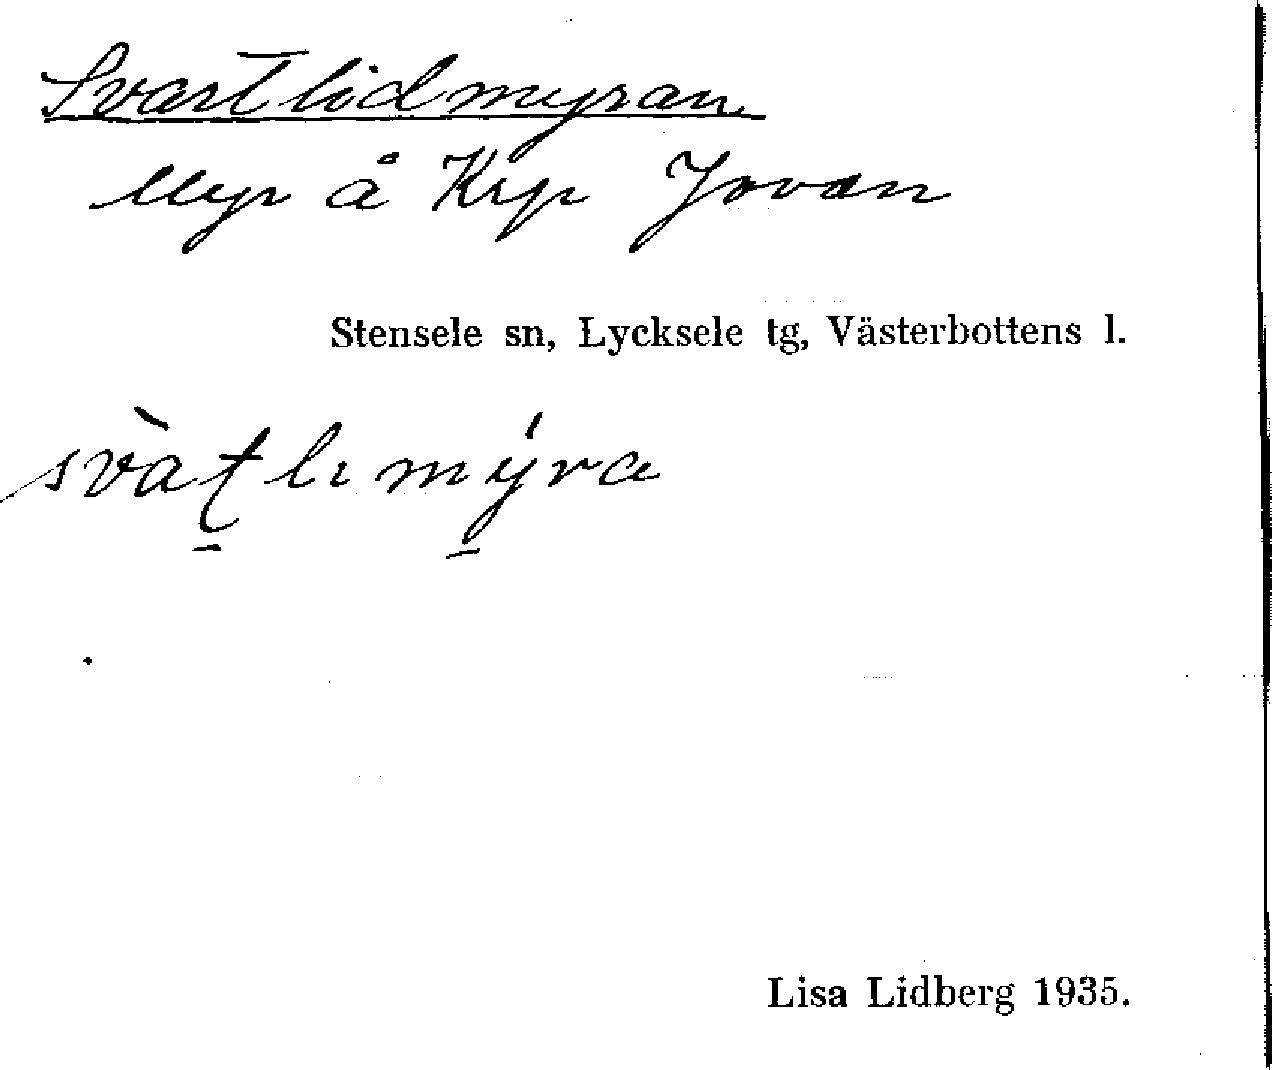 Svartlidmyran
Myr å Krp Jovan
Stensele sn, Lycksele tg, Västerbottens l.
svàʈlımýra
Lisa Lidberg 1935.